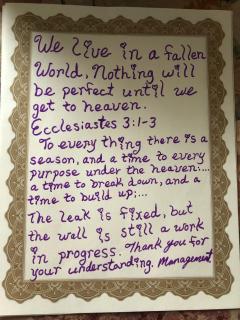 We live in a fallen
World, Nothing will
be perfect until we
get to heaven.
Ecclesiastes 3:1-3
To every thing there is a
season, and a time to every
purpose under the heaven:...
a time to break down, and a
time to build up;...
The leak is fixed, but
the wall is still a work
in progress. Thank you for
your understanding. Management